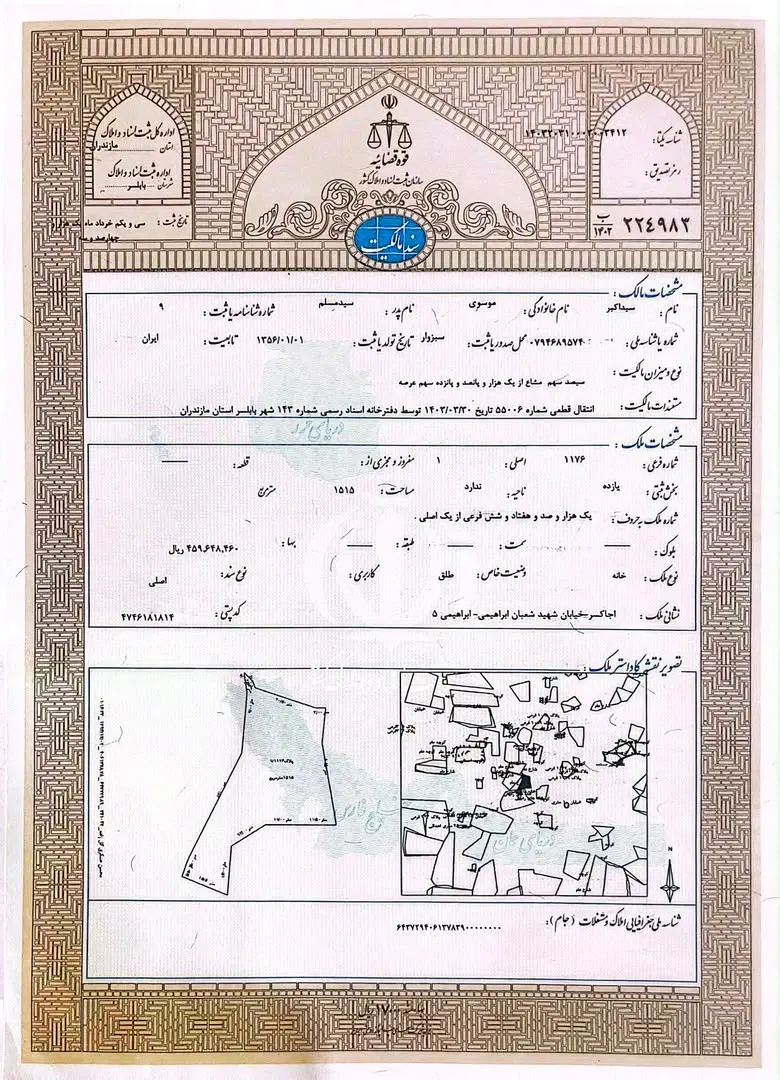 اداره کل ثبت اسناد و املاک
استان مازندران
اداره ثبت اسناد و املاک
شهرستان بابلسر
تاریخ ثبت : سی و یکم خرداد ماه یک هزار و چهارصد و سه
قوه قضائیه
سازمان ثبت اسناد و املاک کشور
سند مالکیت
شناسه یکتا :
رمز تصدیق :
۲۲۴۹۸۳ ب ۱۴۰۲
مشخصات مالک :
نام : سیداکبر نام خانوادگی : موسوی نام پدر : سیدمسلم شماره شناسنامه یا ثبت : ۹
شماره یا شناسه ملی : ۰۷۹۴۶۸۹۵۷۴ محل صدور یا ثبت : سبزوار تاریخ تولد یا ثبت : ۱۳۵۶/۰۱/۰۱ تابعیت : ایران
نوع و میزان مالکیت :
سیصد سهم مشاع از یک هزار و پانصد و پانزده سهم عرصه
مستندات مالکیت : انتقال قطعی شماره ۵۵۰۰۶ تاریخ ۱۴۰۳/۰۳/۳۰ توسط دفترخانه اسناد رسمی شماره ۱۴۳ شهر بابلسر استان مازندران
دریای خزر
مشخصات ملک :
شماره فرعی : ۱۱۷۶ اصلی : ۱ مفروز و مجزی از : —— قطعه :
بخش ثبتی : یازده ناحیه : ندارد مساحت : ۱۵۱۵ مترمربع
شماره ملک به حروف : یک هزار و صد و هفتاد و شش فرعی از یک اصلی .
بلوک : —— سمت : —— طبقه : —— بها : ۴۵۹,۶۴۸,۴۶۰ ریال
نوع ملک : خانه وضعیت خاص : طلق کاربری : نوع سند : اصلی
نشانی ملک : اجاکسر-خیابان شهید شعبان ابراهیمی- ابراهیمی ۵ کدپستی : ۴۷۴۶۱۸۱۸۱۴
تصویر نقش کاداستر ملک :
N
خلیج فارس
دریای عمان
شناسه ملی جغرافیایی املاک و مستغلات (جام) : ۶۴۳۷۲۹۴۰۶۱۳۷۸۳۹۰۰۰۰۰۰۰۰